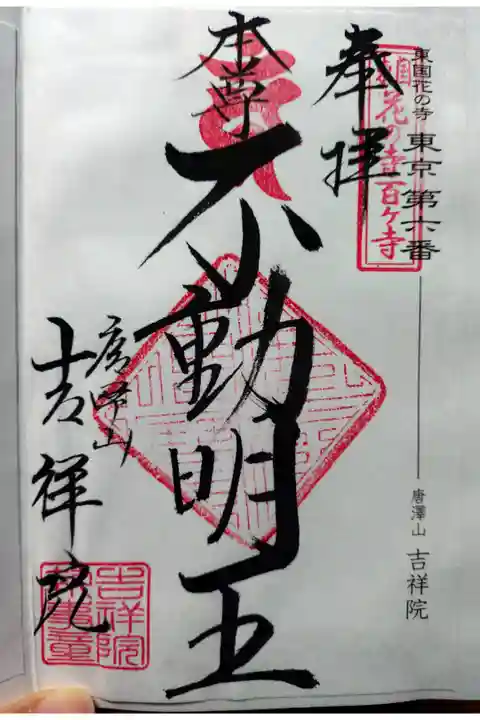 東国花の寺 東京 第六番 唐澤山 吉祥院
奉拝
花の寺百ヶ寺
本尊
不動明王
唐澤山
吉祥院
吉祥院